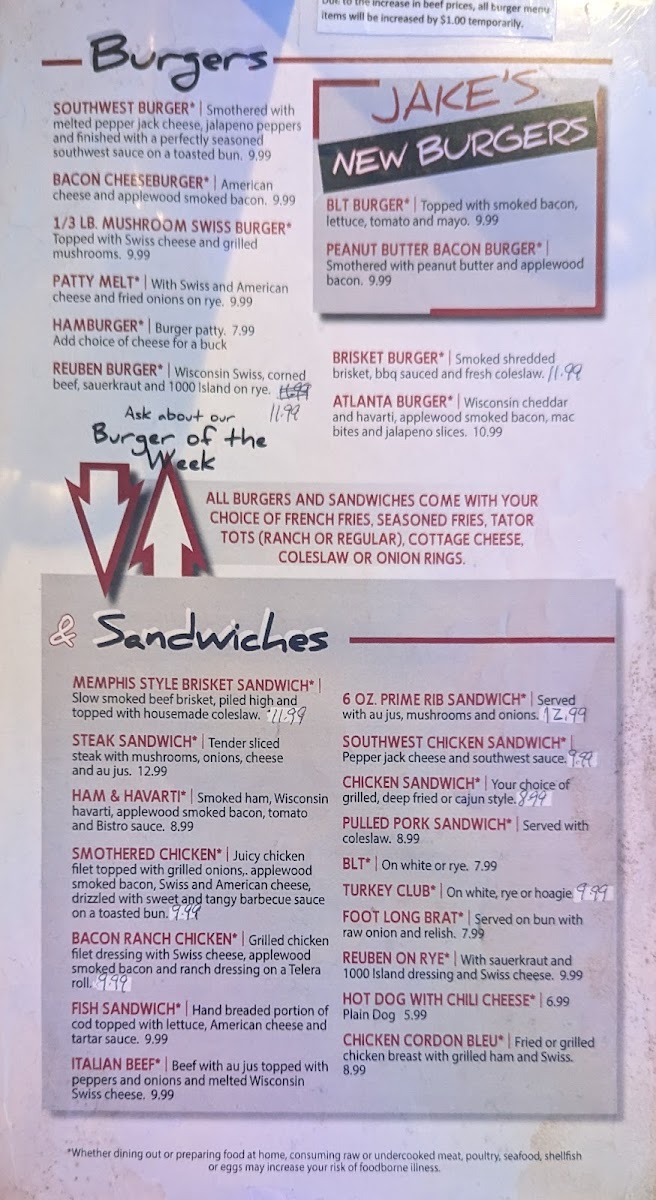 Due to the increase in beef prices, all burger menu
items will be increased by $1.00 temporarily.
Burgers
SOUTHWEST BURGER* | Smothered with
melted pepper jack cheese, jalapeno peppers
and finished with a perfectly seasoned
southwest sauce on a toasted bun. 9.99
BACON CHEESEBURGER* | American
cheese and applewood smoked bacon. 9.99
1/3 LB. MUSHROOM SWISS BURGER*
Topped with Swiss cheese and grilled
mushrooms. 9.99
PATTY MELT* | With Swiss and American
cheese and fried onions on rye. 9.99
HAMBURGER* | Burger patty. 7.99
Add choice of cheese for a buck
REUBEN BURGER* | Wisconsin Swiss, corned
beef, sauerkraut and 1000 Island on rye.
11.99
Ask about our
Burger of the
Week
JAKE'S
NEW BURGERS
BLT BURGER* | Topped with smoked bacon,
lettuce, tomato and mayo. 9.99
PEANUT BUTTER BACON BURGER* |
Smothered with peanut butter and applewood
bacon. 9.99
BRISKET BURGER* | Smoked shredded
brisket, bbq sauced and fresh coleslaw. 11.99
ATLANTA BURGER* | Wisconsin cheddar
and havarti, applewood smoked bacon, mac
bites and jalapeno slices. 10.99
ALL BURGERS AND SANDWICHES COME WITH YOUR
CHOICE OF FRENCH FRIES, SEASONED FRIES, TATOR
TOTS (RANCH OR REGULAR), COTTAGE CHEESE,
COLESLAW OR ONION RINGS.
& Sandwiches
MEMPHIS STYLE BRISKET SANDWICH* |
Slow smoked beef brisket, piled high and
topped with housemade coleslaw. 11.99
STEAK SANDWICH* | Tender sliced
steak with mushrooms, onions, cheese
and au jus. 12.99
HAM & HAVARTI* | Smoked ham, Wisconsin
havarti, applewood smoked bacon, tomato
and Bistro sauce. 8.99
SMOTHERED CHICKEN* | Juicy chicken
filet topped with grilled onions,. applewood
smoked bacon, Swiss and American cheese,
drizzled with sweet and tangy barbecue sauce
on a toasted bun. 9.99
BACON RANCH CHICKEN* | Grilled chicken
filet dressing with Swiss cheese, applewood
smoked bacon and ranch dressing on a Telera
roll. 9.99
FISH SANDWICH* | Hand breaded portion of
cod topped with lettuce, American cheese and
tartar sauce. 9.99
ITALIAN BEEF* | Beef with au jus topped with
peppers and onions and melted Wisconsin
Swiss cheese. 9.99
6 OZ. PRIME RIB SANDWICH* | Served
with au jus, mushrooms and onions. 12.99
SOUTHWEST CHICKEN SANDWICH* |
Pepper jack cheese and southwest sauce. 9.99
CHICKEN SANDWICH* | Your choice of
grilled, deep fried or cajun style. 8.99
PULLED PORK SANDWICH* | Served with
coleslaw. 8.99
BLT* | On white or rye. 7.99
TURKEY CLUB* | On white, rye or hoagie 9.99
FOOT LONG BRAT* | Served on bun with
raw onion and relish. 7.99
REUBEN ON RYE* | With sauerkraut and
1000 Island dressing and Swiss cheese. 9.99
HOT DOG WITH CHILI CHEESE* | 6.99
Plain Dog 5.99
CHICKEN CORDON BLEU* | Fried or grilled
chicken breast with grilled ham and Swiss.
8.99
*Whether dining out or preparing food at home, consuming raw or undercooked meat, poultry, seafood, shellfish
or eggs may increase your risk of foodborne illness.